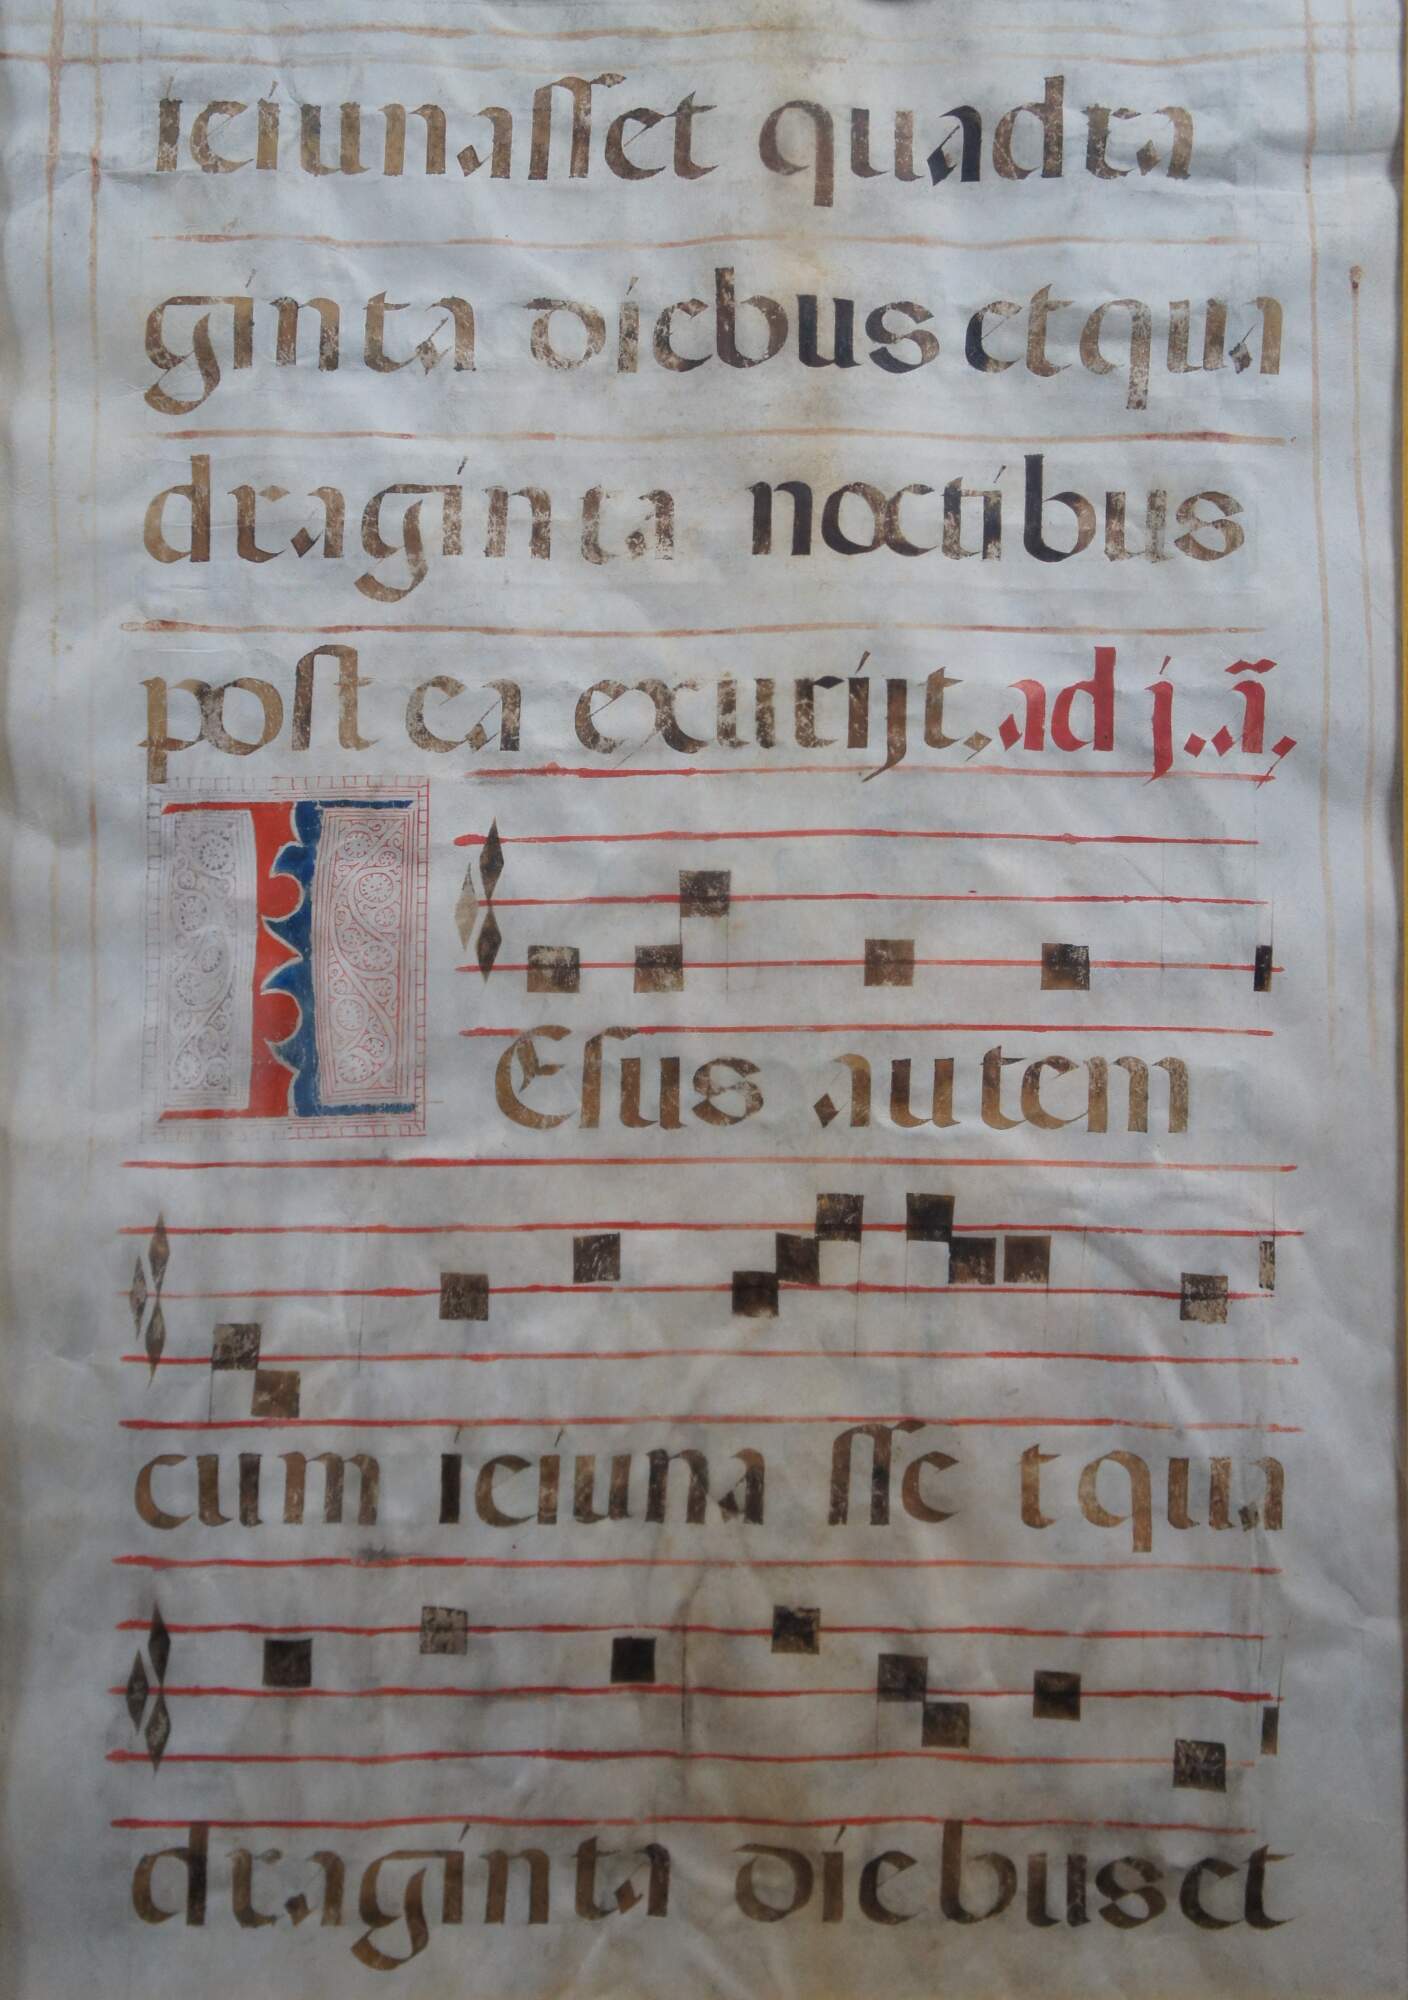 ieiunasset quadra
ginta diebus et qua
draginta noctibus
post ea exurijt. ad j. ã.
IEsus autem
cum ieiuna sse t qua
draginta diebus et